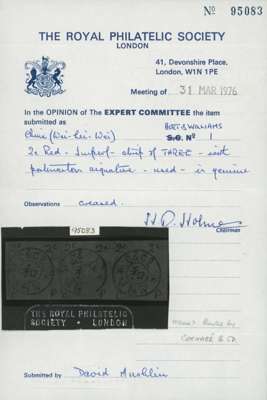 Nº 95083
THE ROYAL PHILATELIC SOCIETY
LONDON
41, Devonshire Place,
London, W1N 1PE
Meeting of 31 MAR 1976
In the OPINION of The EXPERT COMMITTEE the item
submitted as
BOTT & WILLIAMS
China (Wei-Hei-Wei) S.G. Nº 1
2c Red - Imperf - strip of THREE - with
postmasters signature - used - is genuine
Observations Creased.
Chairman
95083
THE ROYAL PHILATELIC
SOCIETY • LONDON
Submitted by David